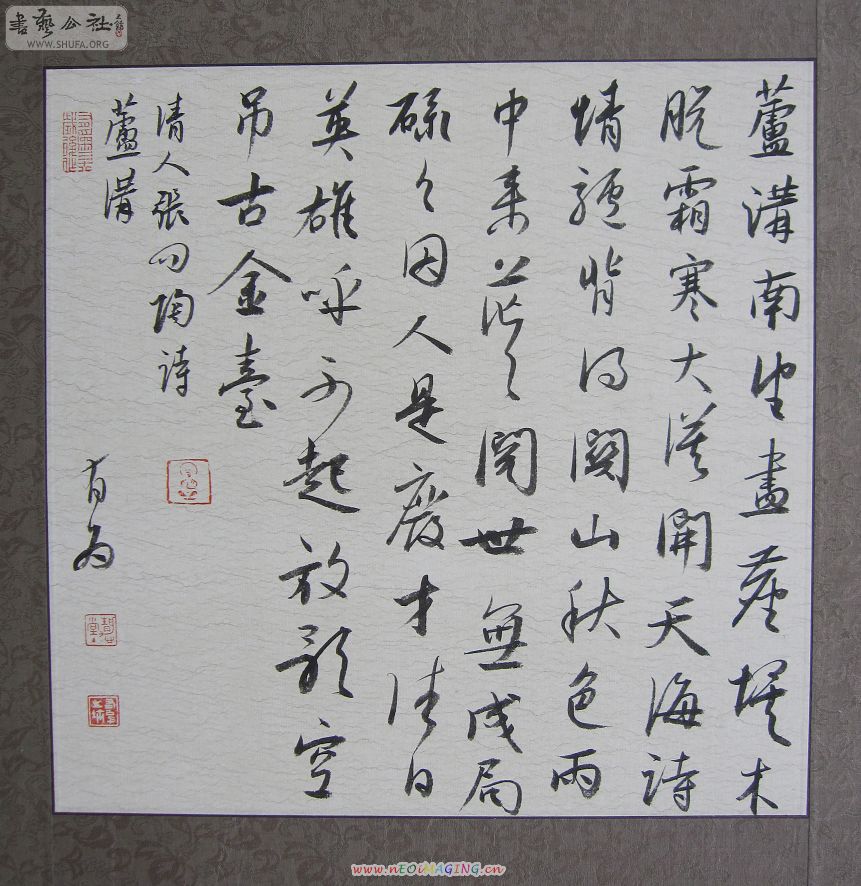 書藝公社
WWW.SHUFA.ORG
蘆溝南望盡塵埃木
脫霜寒大漠開天海詩
情驢背得關山秋色雨
中來茫々閱世無成局
碌々因人是廢才往日
英雄呼不起放歌空
吊古金臺
清人張問陶詩
蘆溝
有為
www.nEOiMAGiNG.cn